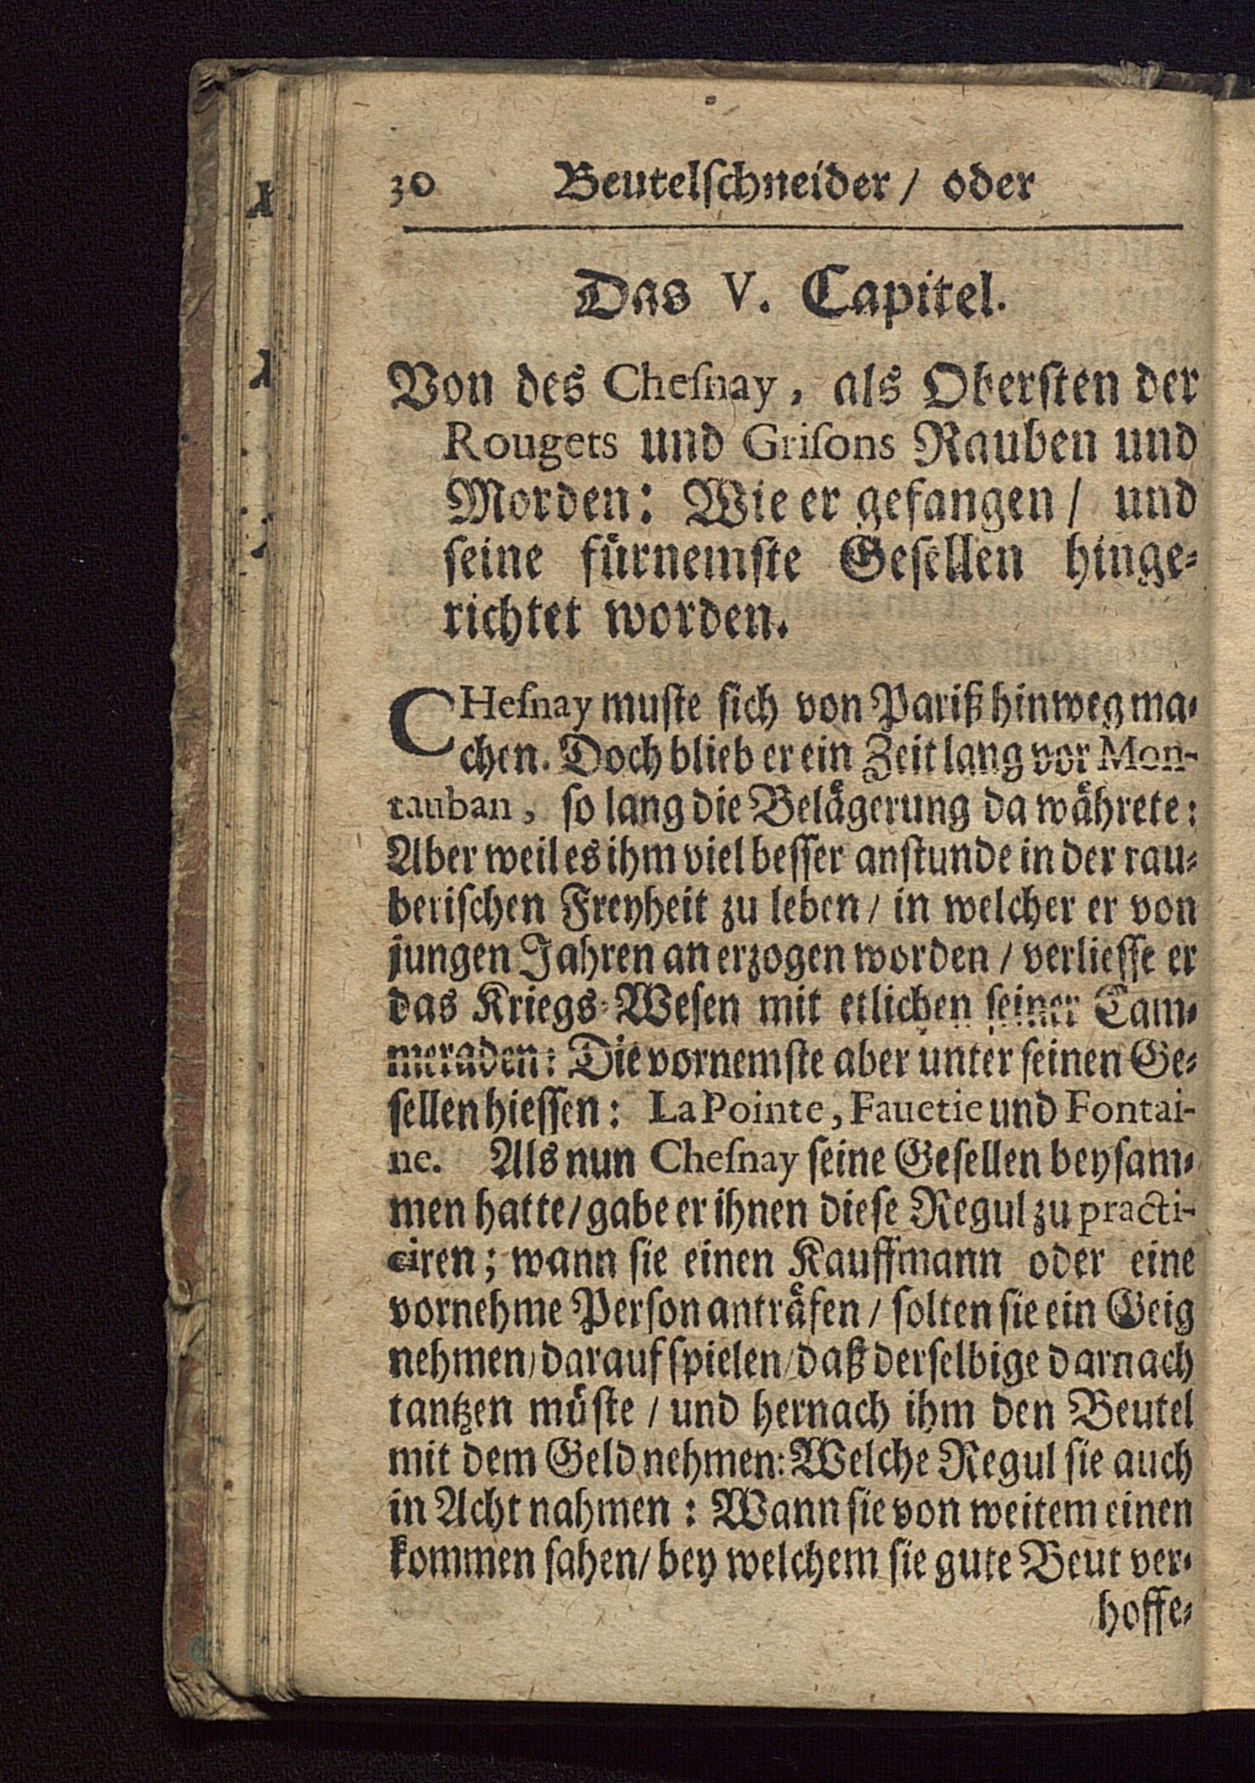 30 Beutelſchneider / oder
Das V. Capitel.
Von des Cheſnay, als Oberſten der
Rougets und Griſons Rauben und
Morden: Wie er gefangen / und
ſeine fuͤrnemſte Geſellen hinge-
richtet worden.
CHeſnay muſte ſich von Pariß hinweg ma-
chen. Doch blieb er ein Zeit lang vor Mon-
tauban, ſo lang die Belaͤgerung da waͤhrete:
Aber weil es ihm viel beſſer anſtunde in der rau-
beriſchen Freyheit zu leben / in welcher er von
jungen Jahren an erzogen worden / verlieſſe er
das Kriegs-Weſen mit etlichen ſeiner Cam-
meraden: Die vornemſte aber unter ſeinen Ge-
ſellen hieſſen: La Pointe, Fauetie und Fontai-
ne. Als nun Cheſnay ſeine Geſellen beyſam-
men hatte / gabe er ihnen dieſe Regul zu practi-
ciren; wann ſie einen Kauffmann oder eine
vornehme Perſon antraͤfen / ſolten ſie ein Geig
nehmen / darauf ſpielen / daß derſelbige darnach
tantzen muͤſte / und hernach ihm den Beutel
mit dem Geld nehmen: Welche Regul ſie auch
in Acht nahmen: Wann ſie von weitem einen
kommen ſahen / bey welchem ſie gute Beut ver-
hoffe-